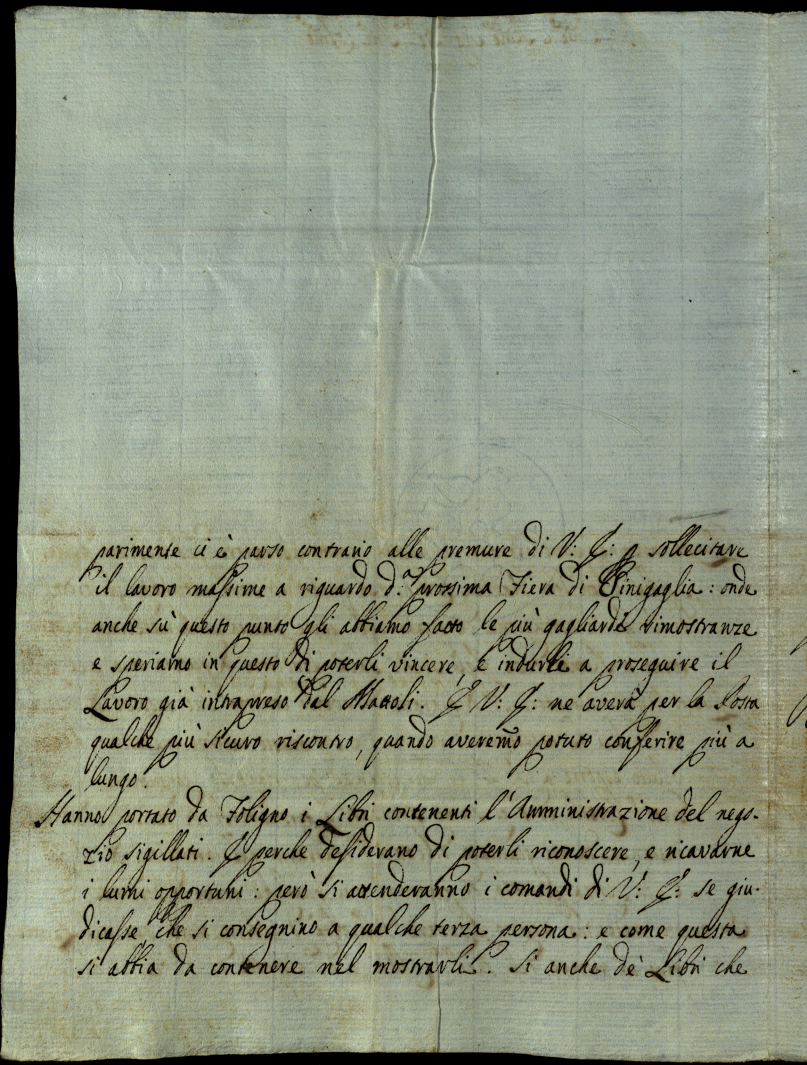 parimente ci è parso contrario alle premure di V: E: p sollecitare
il lavoro massime a riguardo d.ª prossima Fiera di Sinigaglia: onde
anche sù questo punto gli abbiamo fatto le più gagliarde rimostranze
e speriamo in questo di poterli vincere, e indurli a proseguire il
Lavoro già intrapreso dal Mattoli. E V: E: ne averà per la Posta
qualche più sicuro riscontro, quando averemo potuto conferire più a
lungo.
Hanno portato da Foligno i Libri contenenti l'Amministrazione del nego-
zio sigillati. E perche desiderano di poterli riconoscere, e ricavarne
i lumi opportuni: però si attenderanno i comandi di V: E: se giu-
dicasse che si consegnino a qualche terza persona: e come questa
si abbia da contenere nel mostrarli. Si anche de' Libri che